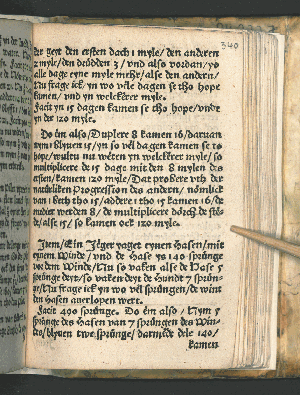 340
der geyt den ersten dach 1 myle/ den anderen
2 myle/ den drüdden 3/ vnd also vordan/ yo
alle dage eyne myle mehr/ alse den andern/
Nu frage ick/ yn wo vêle dagen se tho hope
kamen/ vnd yn welckerer myle.
Facit yn 15 dagen kamen se tho hope/ vnde
yn der 120 myle.
Do êm also/ Duplere 8 kamen 16/ daruan
nym 1 blyuen 15/ yn so vêl dagen kamen se to
hope/ wultu nu wêten yn welckerer myle/ so
multiplicere de 15 dage mit den 8 mylen des
ersten/ kamen 120 myle/ Dat probere vth der
natürliken Progression des andern/ nömlick
van 1 beth tho 15/ addere 1 tho 15 kamen 16/ de
mediêr werden 8/ de multiplicere dörch de stê-
de/ alse 15/ so kamen ock 120 myle.
Item/ Ein Jêger yaget eynen Hasen/ mit
eynem Winde/ vnd de Hase ys 140 sprünge
vor dem Winde/ Nu so vaken alse de Hase 5
sprünge deyt/ so vaken deyt de Hundt 7 sprün-
ge/ Nu frage ick yn wo vêl sprüngen/ de wint
den Hasen auerlopen wert.
Facit 490 sprünge. Do êm also/ Nym 5
sprünge des Hasen van 7 sprüngen des Win-
des/ blyuen twe sprünge/ darmede dele 140/
kamen